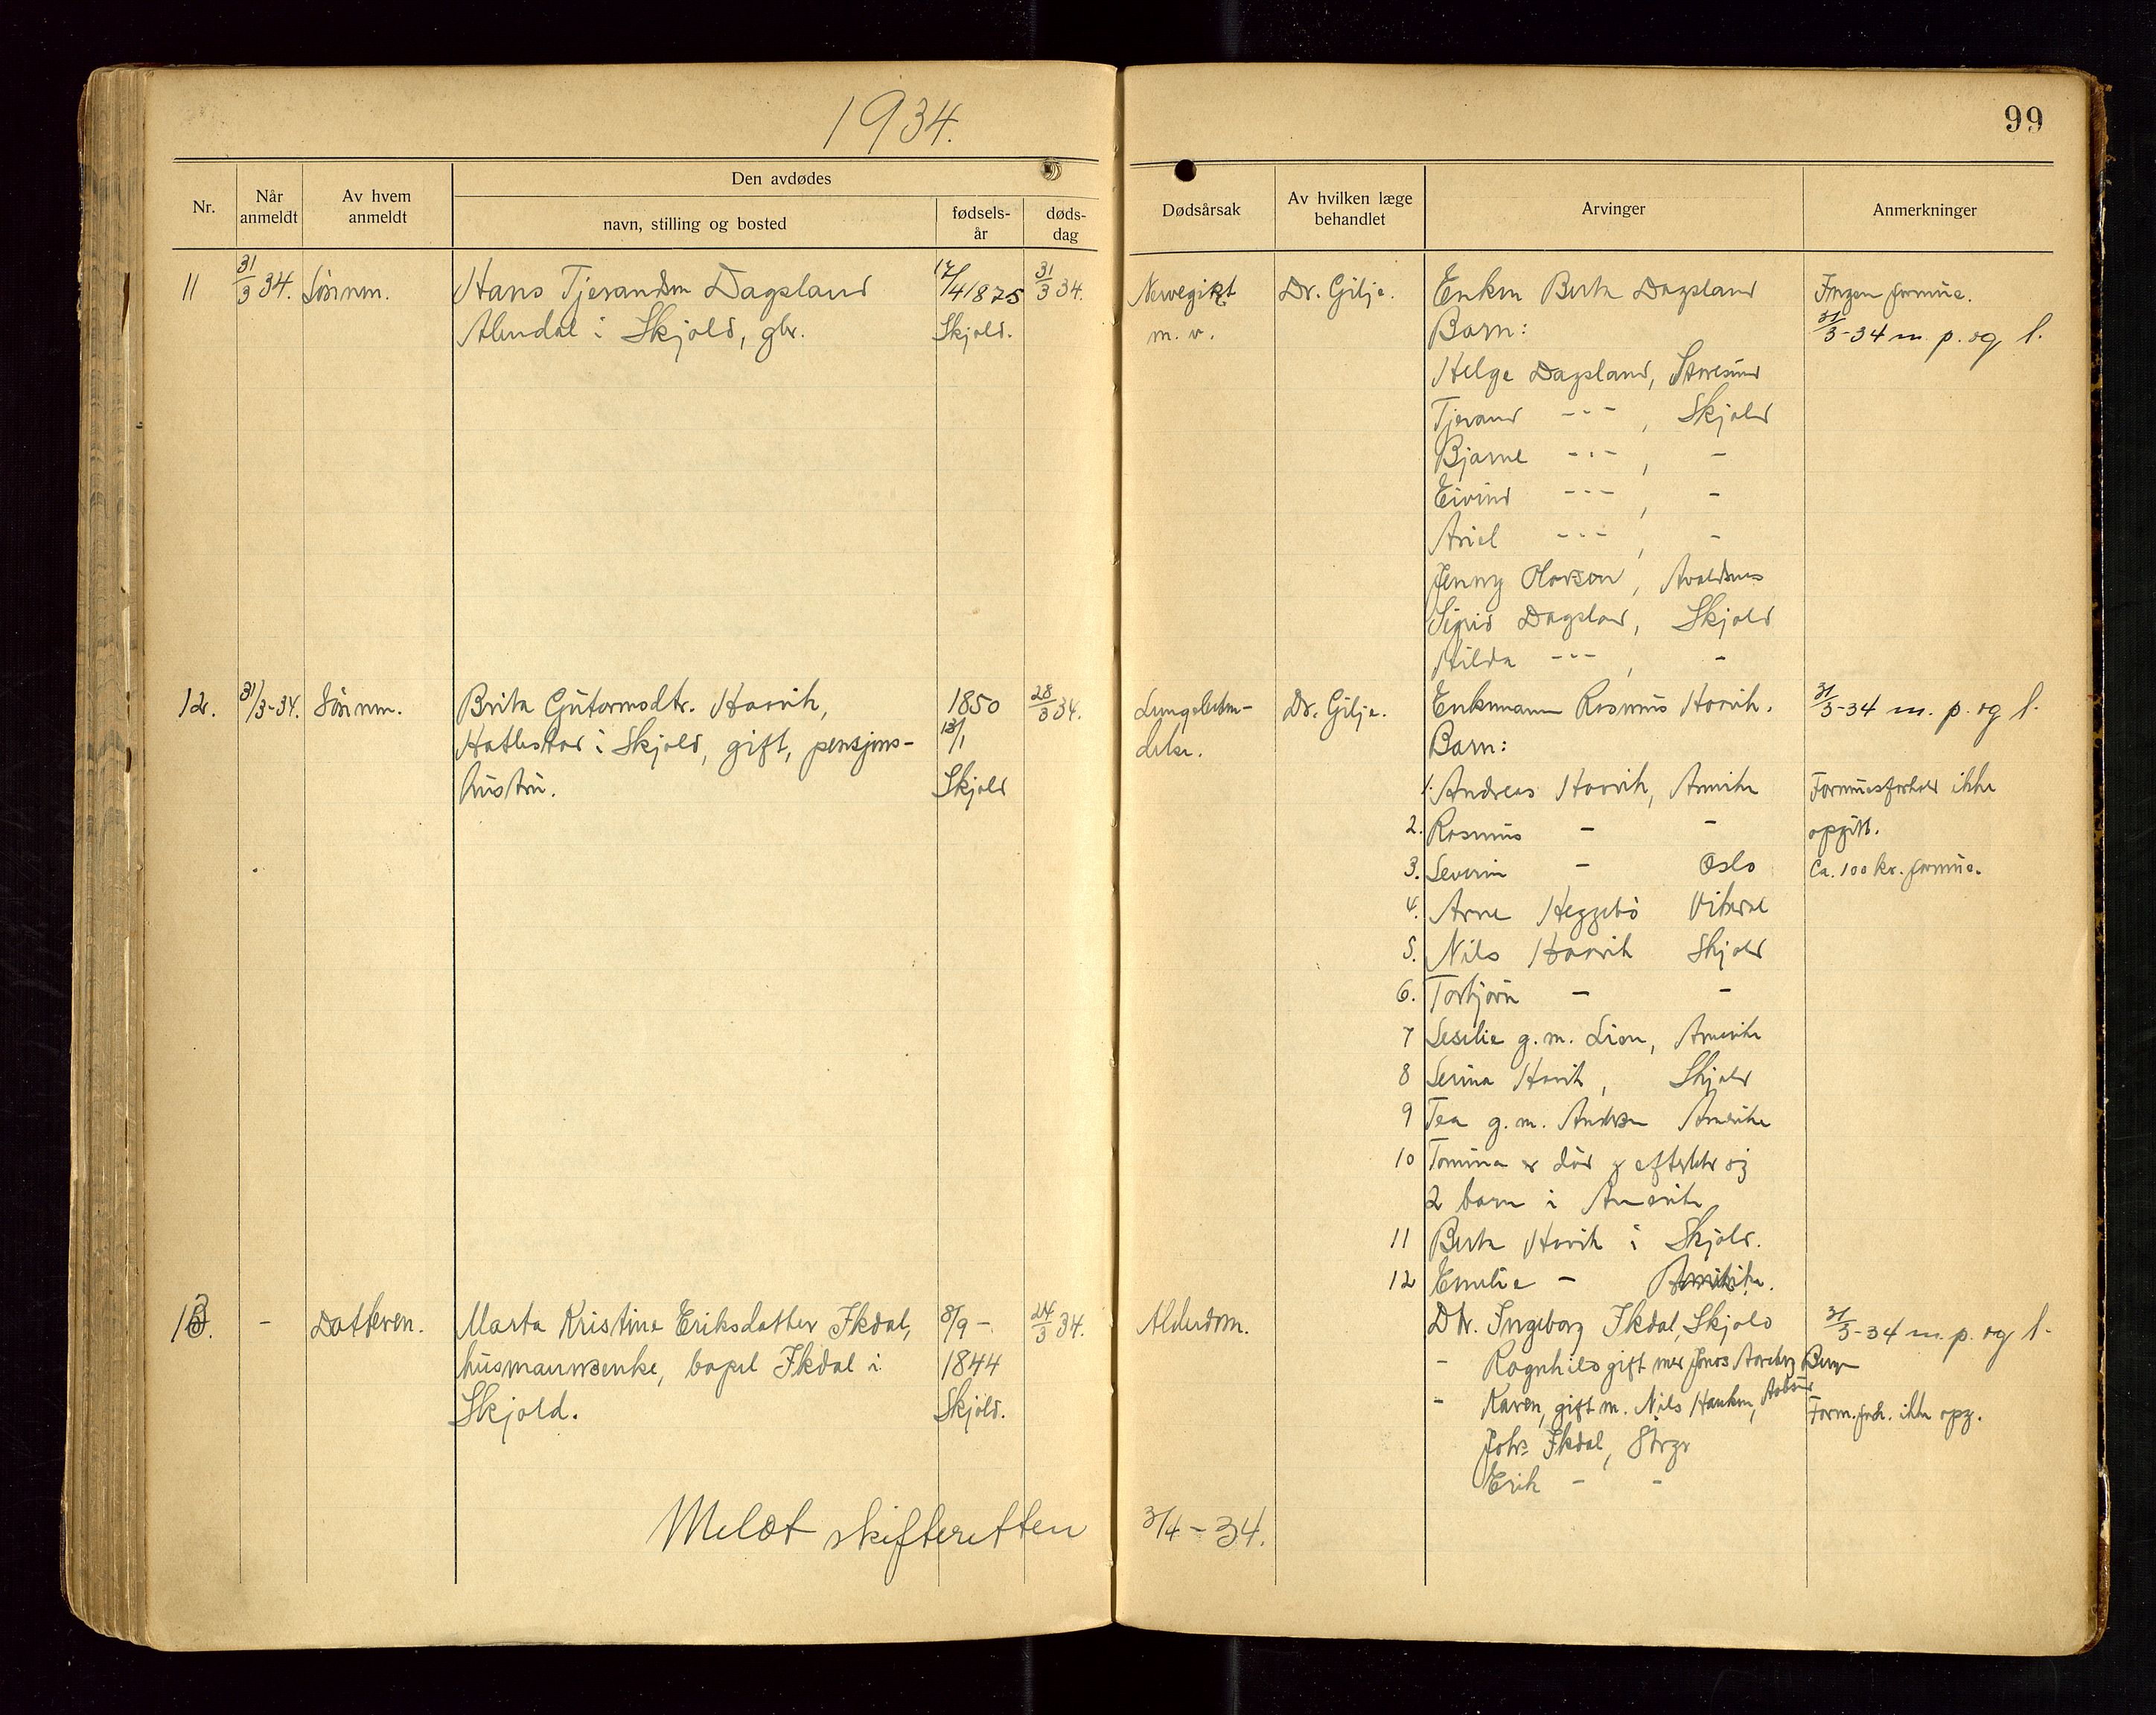 1934.
99
Nr.
Når anmeldt
Av hvem anmeldt
Den avdødes
navn, stilling og bosted
fødsels-år
døds-dag
Dødsårsak
Av hvilken læge behandlet
Arvinger
Anmerkninger
11 31/3 34. Sønnen. Hans Tjerandsen Dagsland 17/4 1875 31/3 34. Nervegikt Dr. Gilje. Enken Berta Dagsland Ingen formue.
Alendal i Skjold, gbr. Skjold. m. v. Barn: 31/3-34 m. p. og l.
Helge Dagsland, Storesund
Tjerand --- , Skjold
Bjarne --- , -
Eivind --- , -
Ariel --- , -
Jenny Olavson, Avaldsnes
Sigrid Dagsland, Skjold
Hilda --- , -
12. 31/3-34. Sønnen. Brita Gutormsdtr. Haavik, 1850 28/3 34. Lungebeten- Dr. Gilje. Enkemann Rasmus Haavik. 31/3-34 m. p. og l.
Hatlestad i Skjold, gift, pensjons- 13/1 delse. Barn:
hustru. Skjold 1. Andreas Haavik, Amerika Formuesforhold ikke
2. Rasmus - - opgitt.
3. Severin - Oslo Ca. 100 kr. formue.
4. Arne Heggebø Vikedal
5. Nils Haavik Skjold
6. Torbjørn - -
7 Sesilie g. m. Lien, Amerika
8 Serina Havik, Skjold
9 Tea g. m. Andersen Amerika
10 Tomina er død og efterlater sig
2 barn i Amerika
11 Berta Havik i Skjold.
12 Emilie - Amerika.
13. - Datteren. Marta Kristine Eriksdatter Ikdal, 8/9 - 24/3 34. Alderdom. Dtr. Ingeborg Ikdal, Skjold 31/3-34 m. p. og l.
husmannsenke, bopel Ikdal i 1844 - Ragnhild gift med Jonas Bergen
Skjold. Skjold. - Karen, gift m. Nils Form.forh. ikke opg.
Johs Ikdal,
Erik - -
Meldt skifteretten 3/4-34.